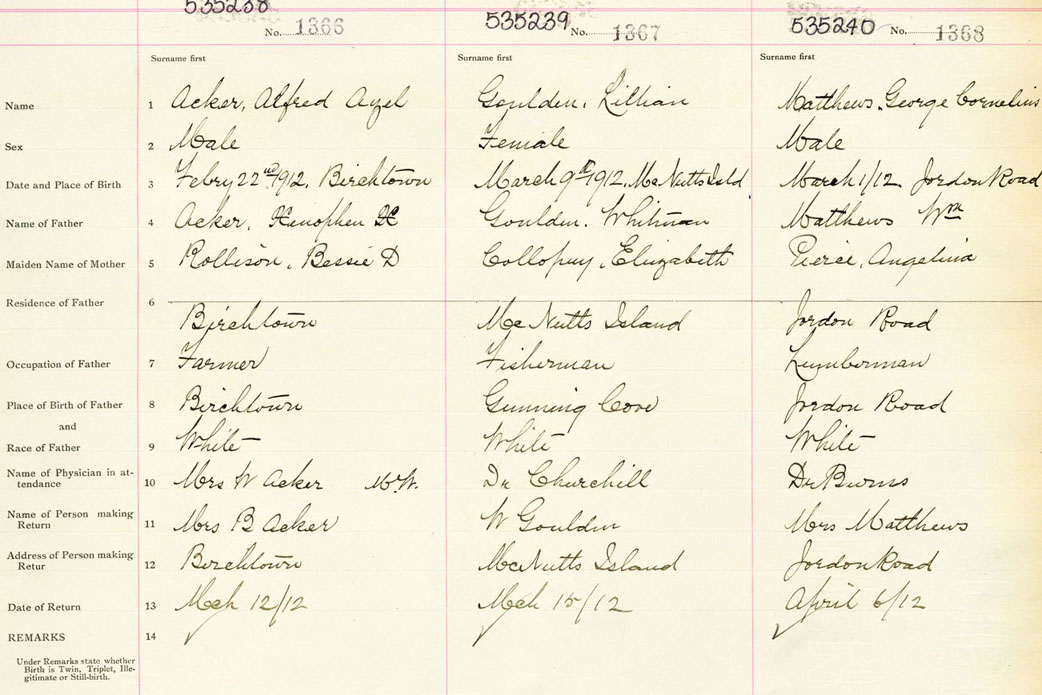 535238 535239 535240
No. 1366 No. 1367 No. 1368
Surname first Surname first Surname first
Name 1 Acker, Alfred Azel Goulden, Lillian Matthews, George Cornelius
Sex 2 Male Female Male
Date and Place of Birth 3 Febry 22nd 1912, Birchtown March 9th 1912, McNutts Isld March 1/12. Jordon Road
Name of Father 4 Acker, Xenophen Goulden, Whitman Matthews Wm
Maiden Name of Mother 5 Rollison, Bessie D Collopuy, Elizabeth Pierce, Angelina
Residence of Father 6
Birchtown McNutts Island Jordon Road
Occupation of Father 7 Farmer Fisherman Lumberman
Place of Birth of Father 8 Birchtown Gunning Cove Jordon Road
and
Race of Father 9 White White White
Name of Physician in at-
tendance 10 Mrs W Acker M.W. Dr Churchill Dr Burns
Name of Person making
Return 11 Mrs B Acker W Goulden Mrs Matthews
Address of Person making
Retur 12 Birchtown McNutts Island Jordon Road
Date of Return 13 Mch 12/12 Mch 15/12 April 6/12
REMARKS 14
Under Remarks state whether
Birth is Twin, Triplet, Ille-
gitimate or Still-birth.